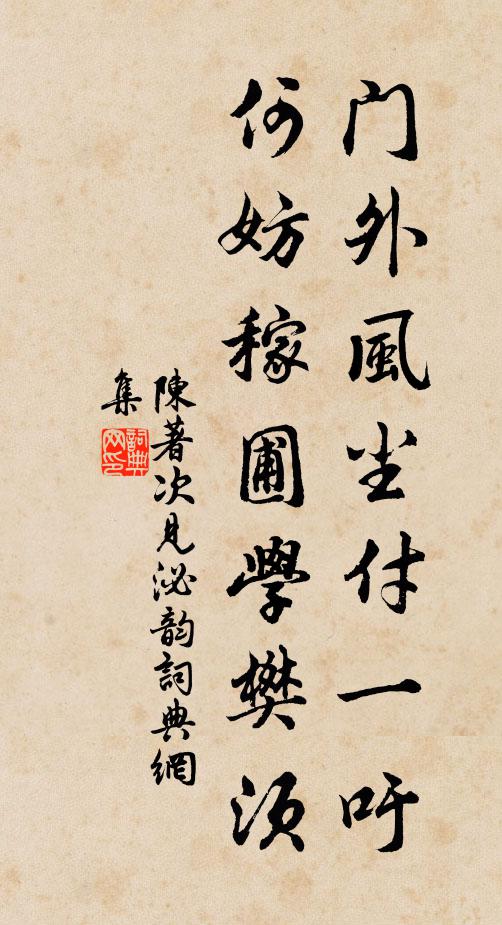 门外風尘付一吁
何妨稼圃學樊须
陳著次見泌韵詞典網
集
詞典网印